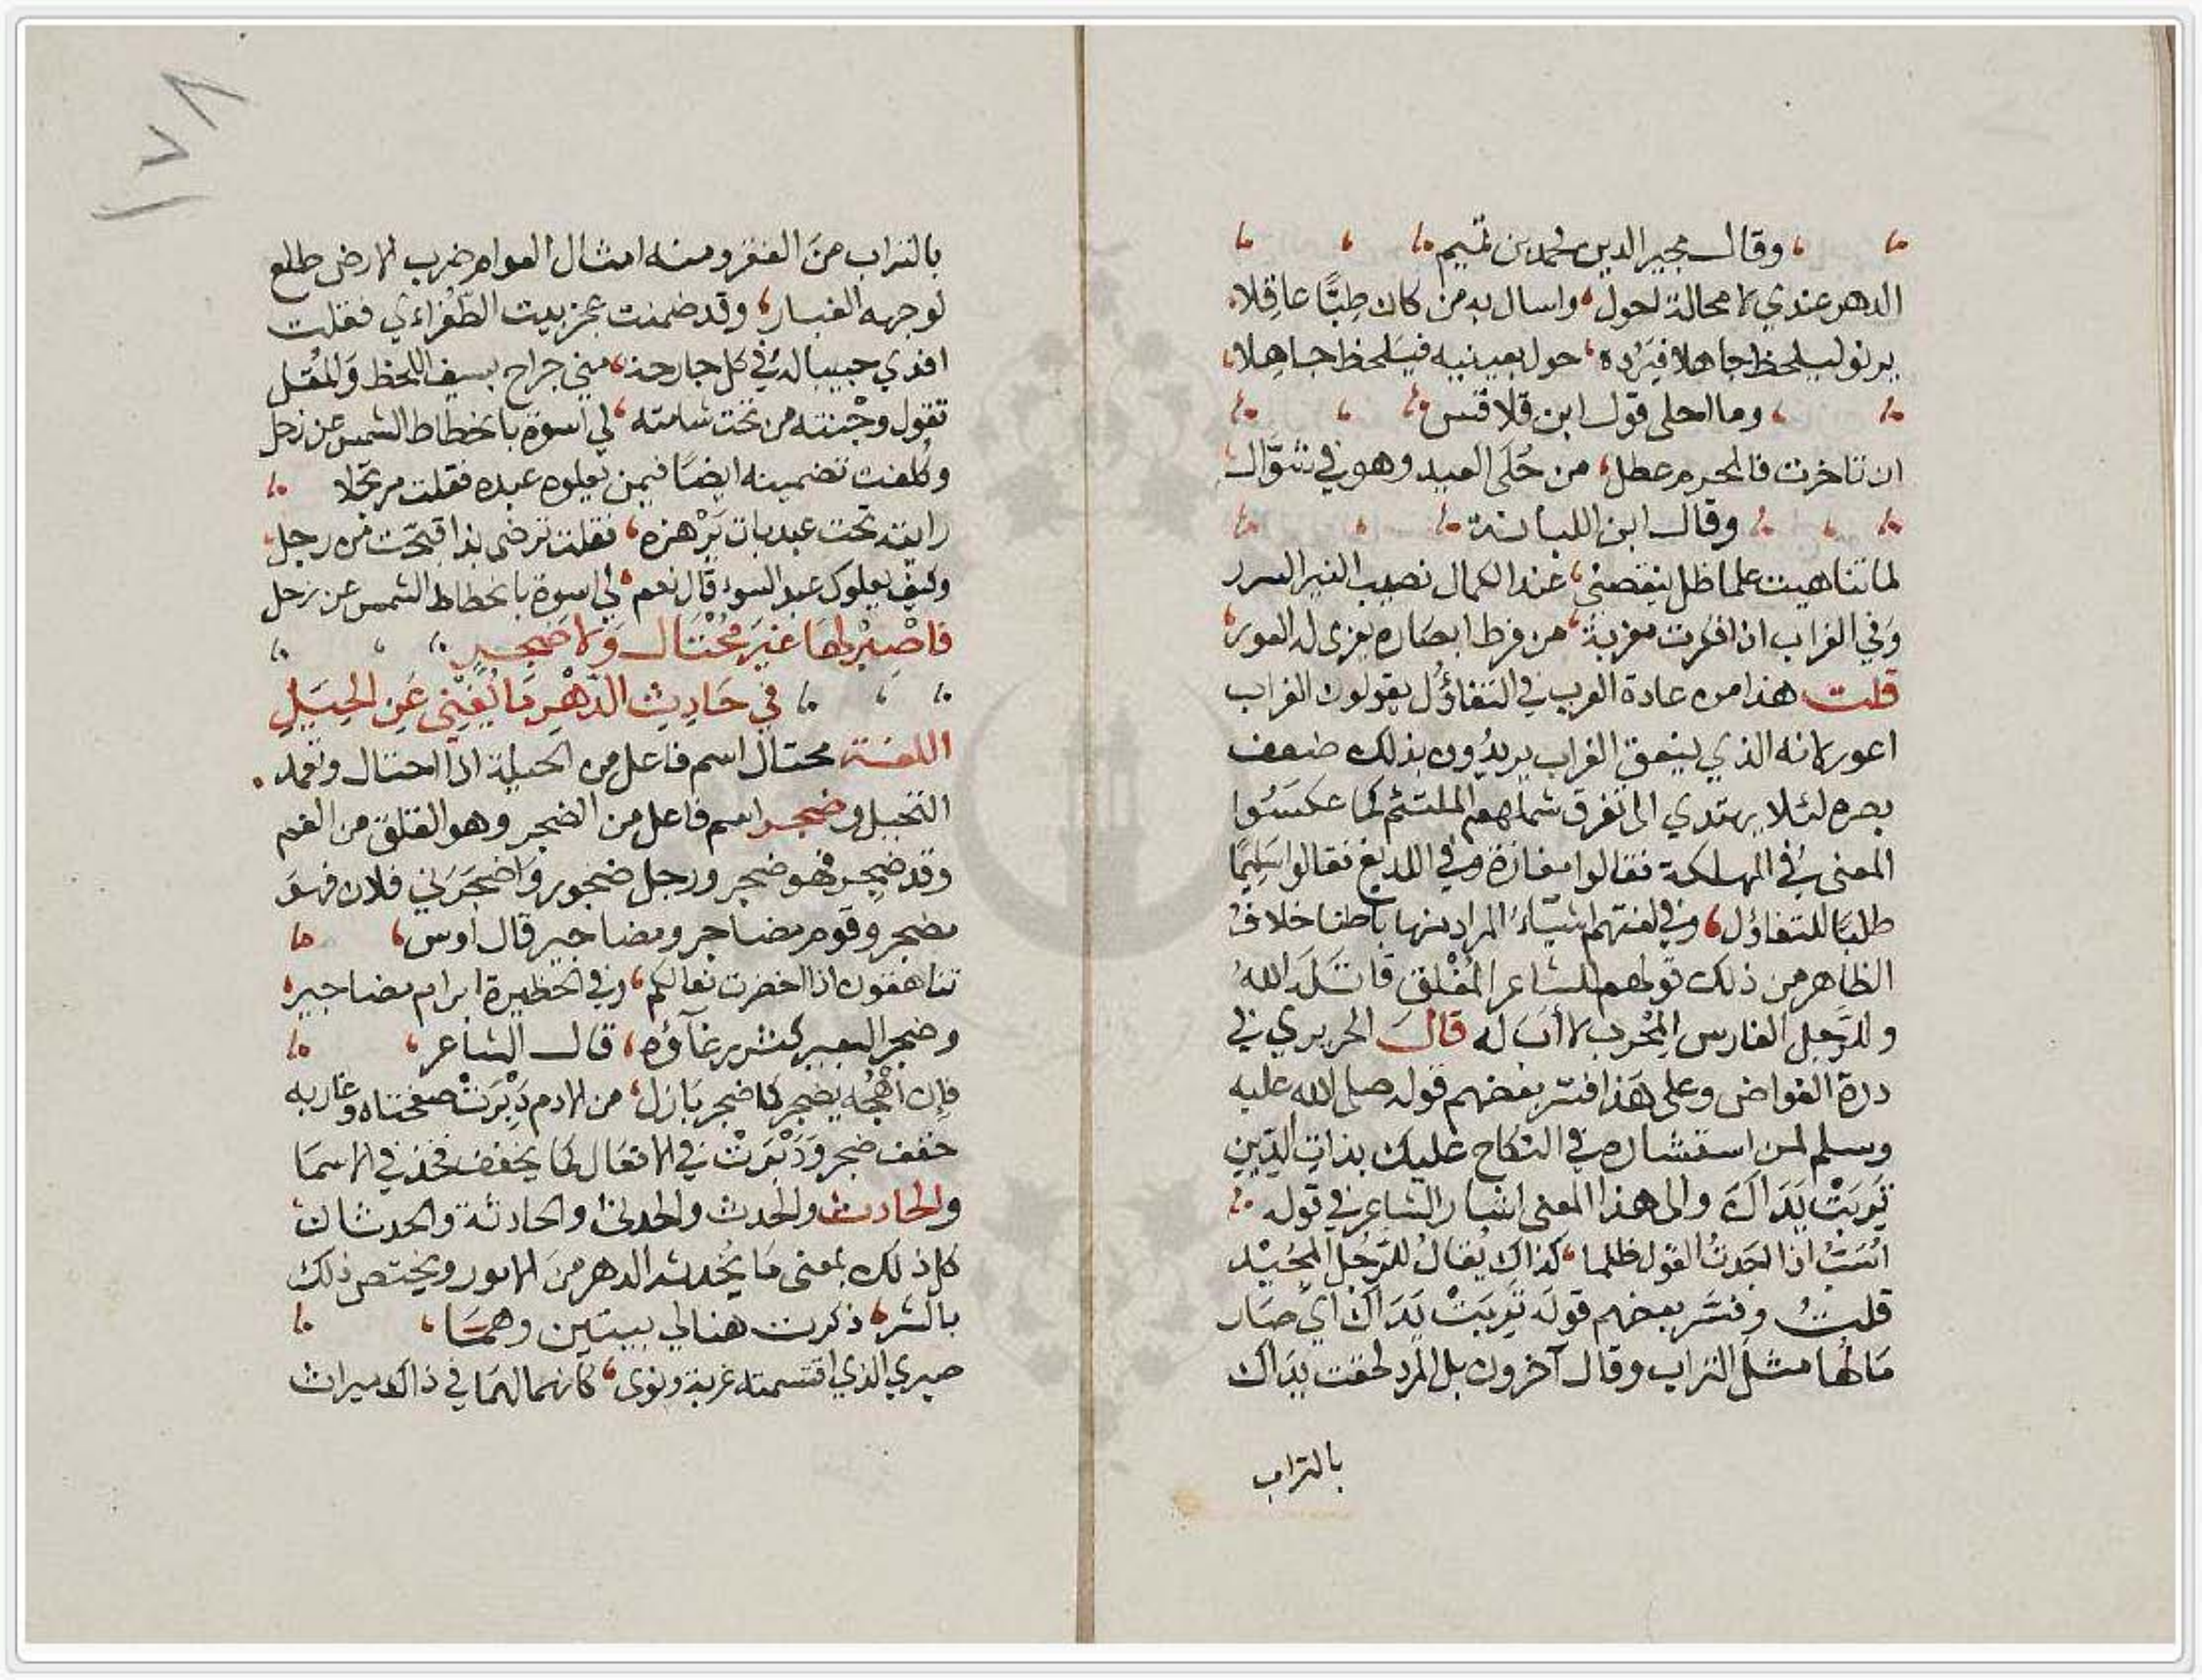 وقال مجير الدين محمد بن تميم
الدهر عندي لا محالة احول، واسال به من كان طبًّا عاقلا
يرنو ليلحظ جاهلا فيَرُده، حول بعينيه فيلحظ جاهِلا
وما احلى قول ابن قلاقس
ان تاخرت فالمحرم عطل، من حُلَى العيد وهو في شوّال
وقال ابن اللبانة
لما تناهيت علما ظل ينقصني، عند الكمال نصيب النير السرر
وَفي الغراب اذا فكرت مغربة، من فرط ابصاره يعزى له العور
قلت هذا من عادة العرب في التفاؤُل يقولون الغراب
اعور لانه الذي ينعق الغراب يريدُون بذلك ضعف
بصره لئلا يهتدي الى تفرق شملهم الملتئم كما عكسُوا
المعنى في المهلكة فقالوا مفازة وفي اللديغ فقالوا سَلِيمًا
طلبًا للتفاؤل، وفي لغتهم اشيَاءُ المراد منها باطنا خلافُ
الظاهر من ذلك قولهم للشاعر المُفْلق قاتَلَه اللهُ
وللرَّجل الفارس المِحْرب لا أبَ له قال الحريري في
درة الغواص وعلى هَذا فسَّر بعضهم قوله صلى الله عليه
وسلم لمن استشاره في النكاح عليك بذات الدِّين
تَرِبَتْ يَدَاكَ والى هذا المعنى اشار الشاعر في قوله
اُسَبُّ اذا اجَدتُ القول ظلما، كذاك يُقالُ للرَّجُل المُجيْد
قلتُ وفسَّر بعضهم قولَه تَرِبَتْ يَدَاكَ اي صَار
مَالُها مثل التراب وقال آخرون بل المراد لحقت يدَاك
بالتراب
١٧٨
بالتراب منَ الفقر ومنه امثال العوام ضرب الارض طلع
لوجهه الغبار، وقد ضمنت عجز بيت الطُّغراءي فقلت
افدي حبيبا له في كل جارحة، مني جراح بسيف اللحظ وَالمُقل
تقول وجْنته من تحت شامته، لي اسوة بانحطاط الشمس عن زحل
وكُلفت تضمينه ايضًا فيمن يعلوه عبده فقلت مرتجلا
رايته تحت عبد بات يَرْهزه، فقلت ترضى بذا قبّحت من رجل
وكيف يعلوك عبد السوء قال نعم، لي اسوة بانحطاط الشمس عن زحل
فَاصْبِرْ لهَا غَيرَ مُحْتَال وَلا ضَجِرٍ
في حَادِثِ الدَّهْرِ مَا يُغْنِي عَنِ الحِيَلِ
اللغة محتال اسم فاعل من الحيلة اذا احتال وتعمد
التحيل وضجر اسم فاعل من الضجر وهو القلق من الغم
وقد ضجر فهو ضجر ورجل ضجور وَاضجَرَني فلان فهو
مضجر وقوم مضاجر ومضاجير قال اوس،
تناهقون اذا اخضرت نعالكم، وفي الحظيرة ابرام مضاجير
وضجر البعير كثر رغآؤه، قال الشاعر،
فإن اَهْجُه يضجر كما ضجر بَازل، من الادم دَبْرَتْ صفحتاه وغاربه
خفف ضجر وَدَبْرَتْ في الافعَال كما يخفف فخذ في الاسمَا
والحادث والحدث والحدثى والحادثة والحدثان
كل ذلك بمعنى مَا يُحدثه الدهر منَ الامور ويختص ذلك
بالشر، ذكرت هنا لي بيتين وهمَا،
صبري الذي اقتسمته غربة ونوى، كانما لهمَا في ذاك ميراث